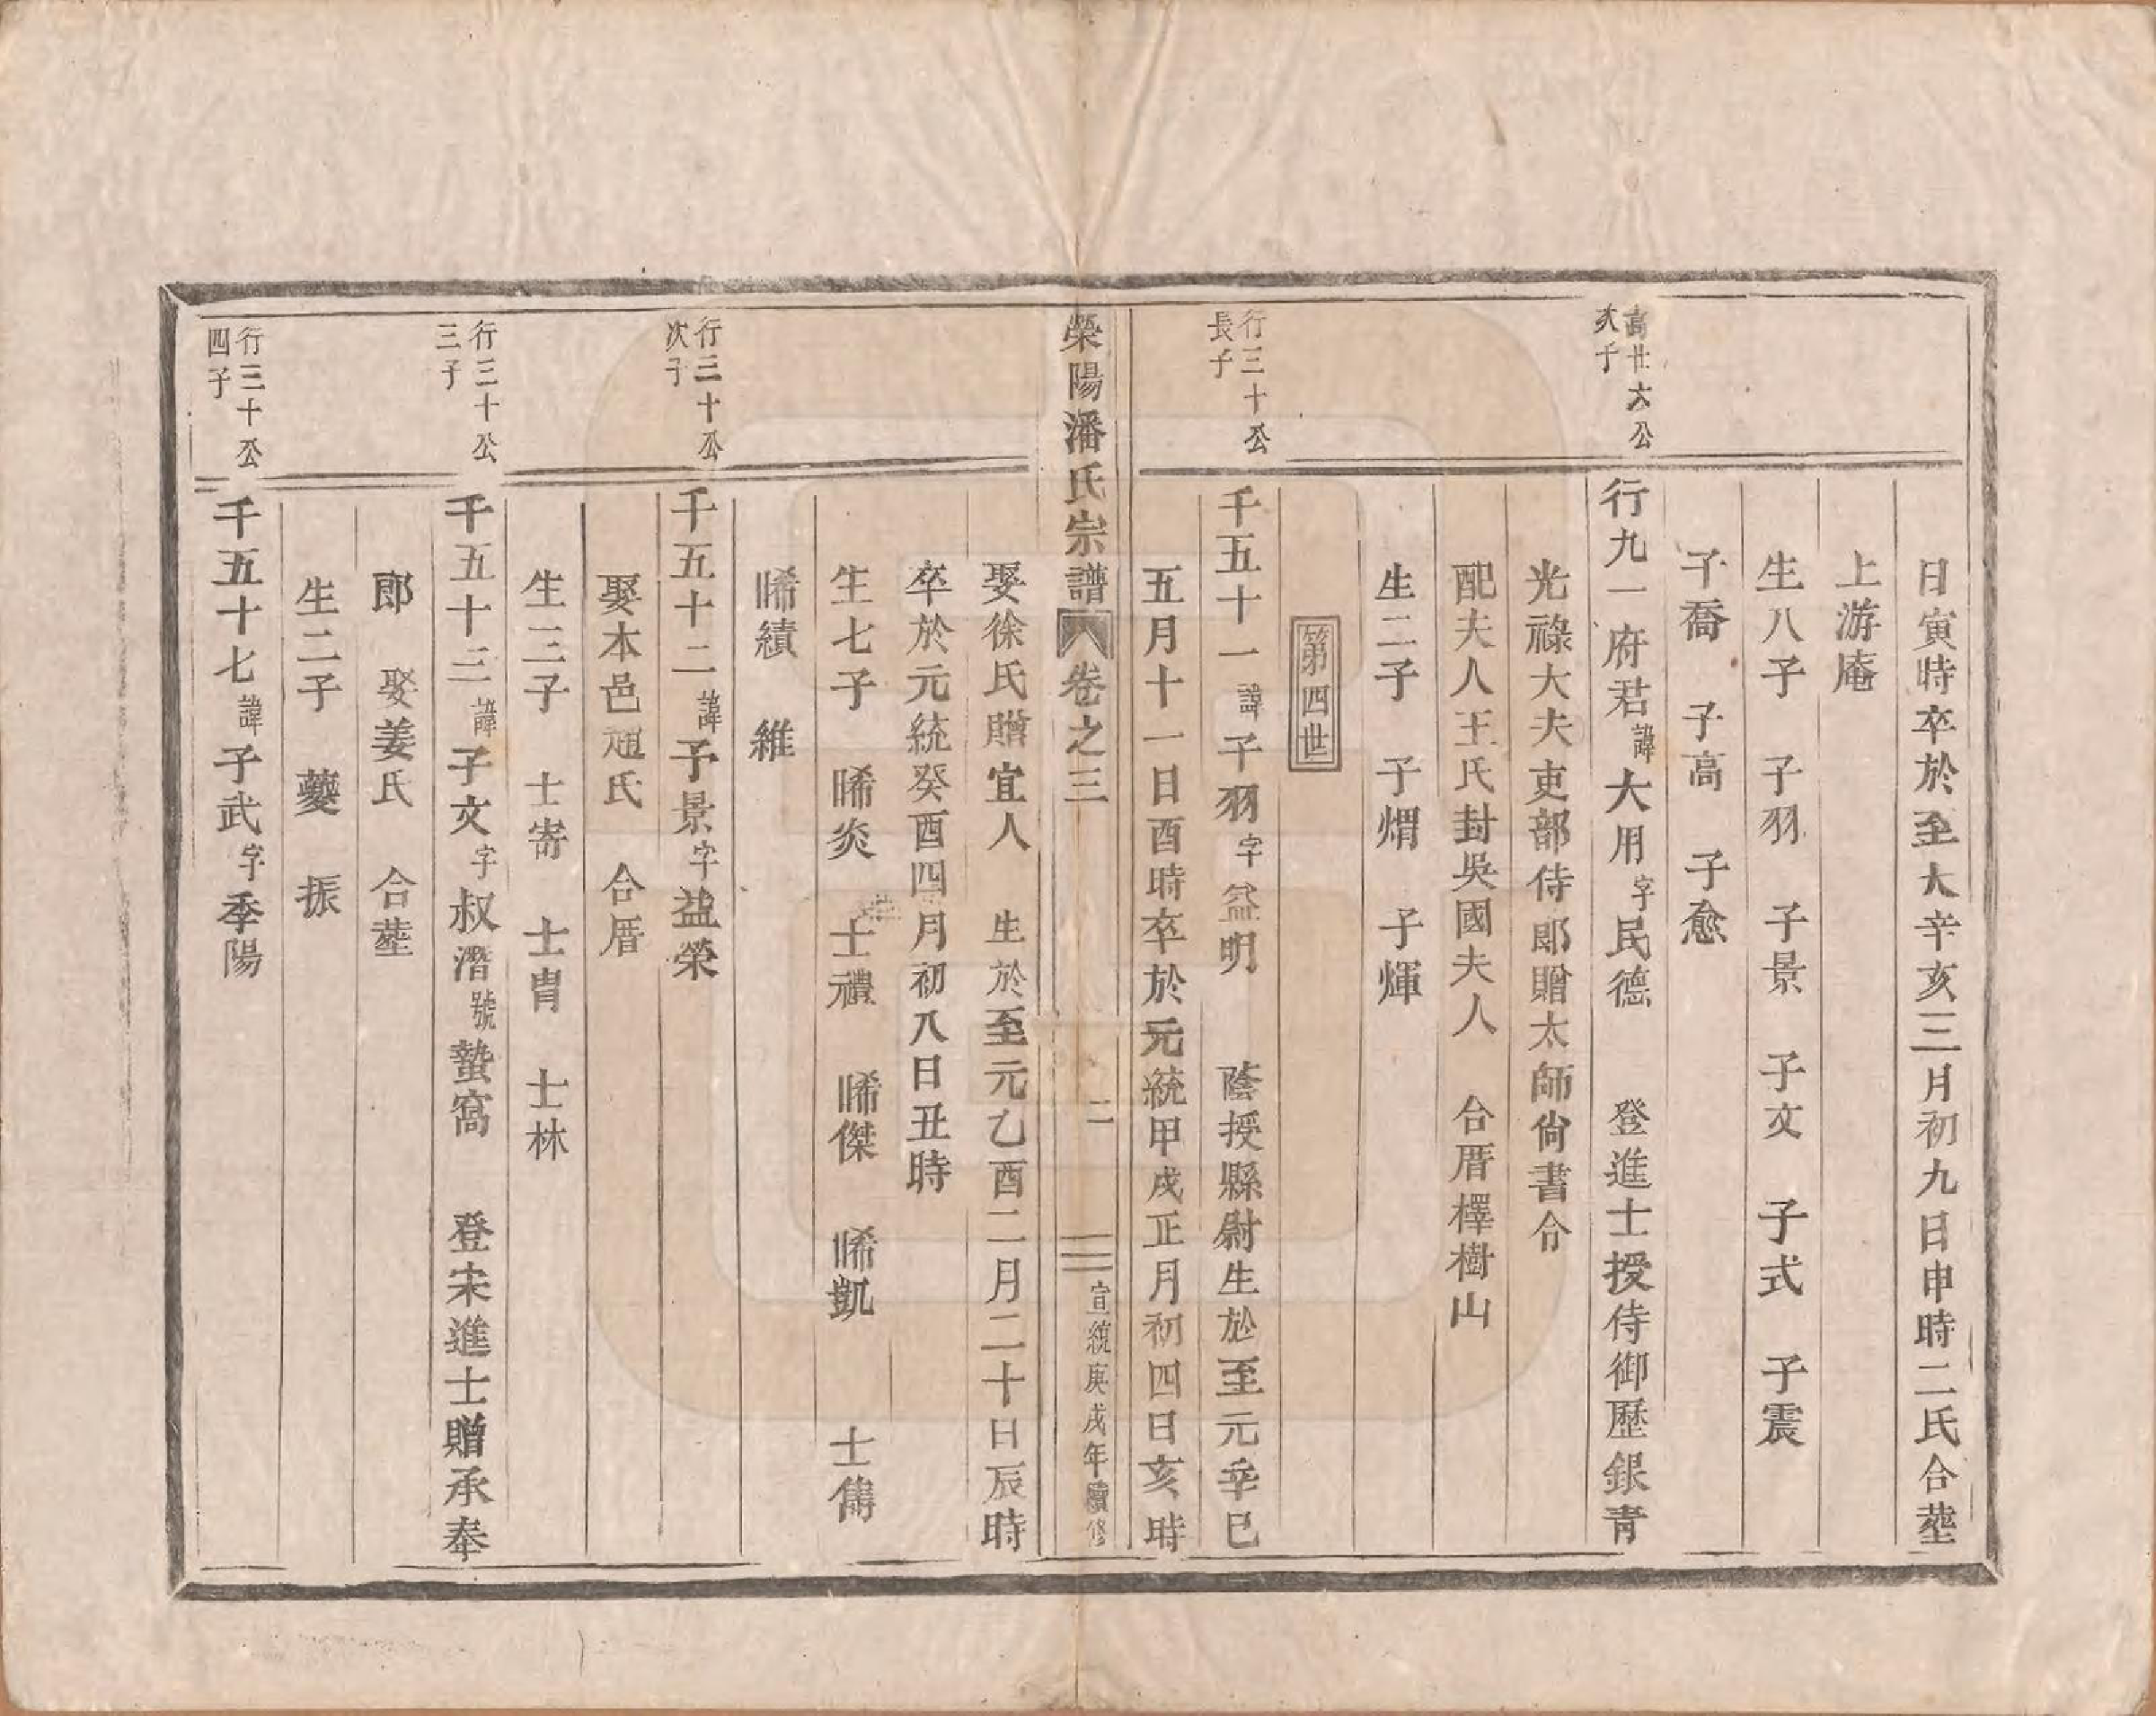 日寅時卒於至大辛亥三月初九日申時二氏合塟
上游庵
生八子 子羽 子景 子文 子式 子震
子喬 子高 子愈
高廿六公
次子
行九一府君諱大用字民德 登進士授侍御歷銀青
光祿大夫吏部侍郎贈太師尙書令
配夫人王氏封吳國夫人 合厝檡樹山
生二子 子熠 子煇
第四世
行三十公
長子
千五十一諱子羽字益明 蔭授縣尉生於至元辛巳
五月十一日酉時卒於元統甲戌正月初四日亥時
滎陽潘氏宗譜 卷之三 二 宣統庚戌年續修
娶徐氏贈宜人 生於至元乙酉二月二十日辰時
卒於元統癸酉四月初八日丑時
生七子 睎炎 士禮 睎傑 睎凱 士儁
睎績 維
行三十公
次子
千五十二諱子景字益榮
娶本邑趙氏 合厝
生三子 士寄 士胄 士林
行三十公
三子
千五十三諱子文字叔潛號蟄窩 登宋進士贈承奉
郎 娶姜氏 合塟
生二子 夔 振
行三十公
四子
千五十七諱子武字季陽